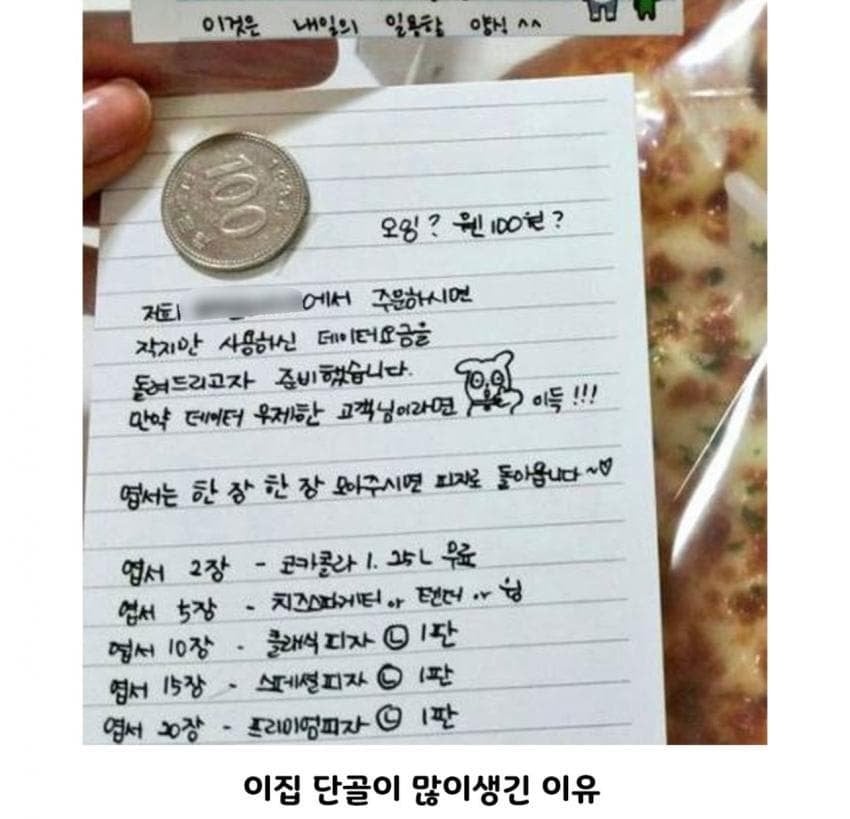 이것은 내일의 일용할 양식 ^^
100
오잉? 웬 100원?
저희 에서 주문하시면
작지만 사용하신 데이터요금을
돌려드리고자 준비했습니다.
만약 데이터 무제한 고객님이라면 이득!!!
엽서는 한 장 한 장 모아주시면 피자로 돌아옵니다~♡
엽서 2장 - 코카콜라 1.25L 무료
엽서 5장 - 치즈스파게티 or 텐더 or 윙
엽서 10장 - 클래식 피자 Ⓛ 1판
엽서 15장 - 스페셜피자 Ⓛ 1판
엽서 20장 - 프리미엄피자 Ⓛ 1판
이집 단골이 많이생긴 이유